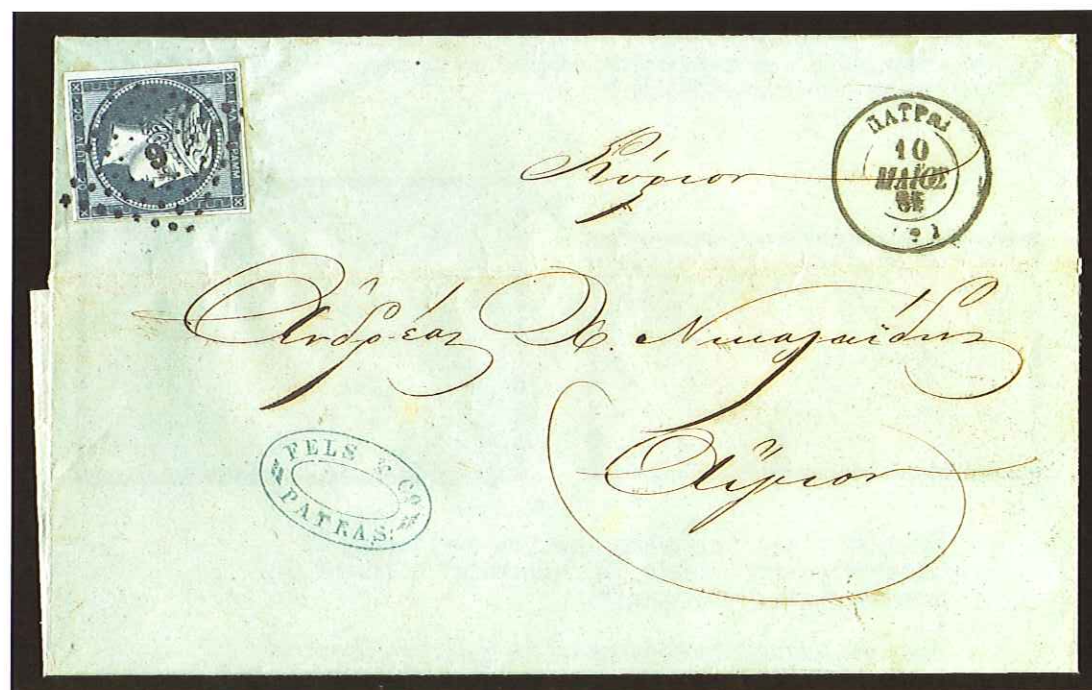 9
ΠΑΤΡΑΙ
10
ΜΑΪΟΣ
Κύριον
Ἀνδρέαν Χ. Νικολαΐδην
Αἴγιον
FELS & Co
PATRAS.